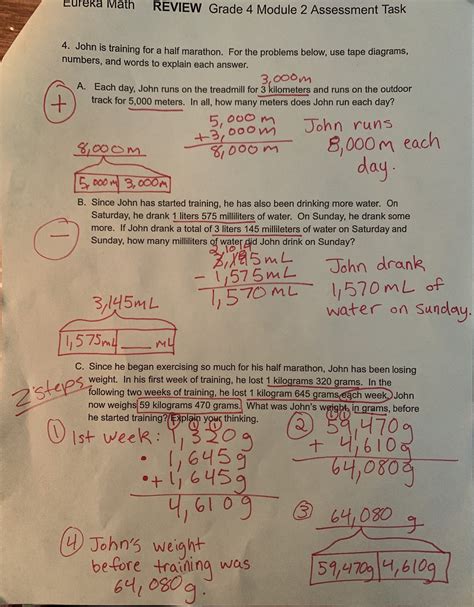 Eureka Math REVIEW Grade 4 Module 2 Assessment Task
4. John is training for a half marathon. For the problems below, use tape diagrams,
numbers, and words to explain each answer.
3,000m
A. Each day, John runs on the treadmill for 3 kilometers and runs on the outdoor
track for 5,000 meters. In all, how many meters does John run each day?
+
5,000m
+3,000m
8,000m
John runs
8,000m each
day.
8,000m
5,000m 3,000m
B. Since John has started training, he has also been drinking more water. On
Saturday, he drank 1 liters 575 milliliters of water. On Sunday, he drank some
more. If John drank a total of 3 liters 145 milliliters of water on Saturday and
Sunday, how many milliliters of water did John drink on Sunday?
−
2 10 14
3,145mL
- 1,575mL
1,570mL
John drank
1,570mL of
water on Sunday.
3,145mL
1,575mL ___ mL
C. Since he began exercising so much for his half marathon, John has been losing
weight. In his first week of training, he lost 1 kilograms 320 grams. In the
following two weeks of training, he lost 1 kilogram 645 grams each week. John
now weighs 59 kilograms 470 grams. What was John's weight, in grams, before
he started training? Explain your thinking.
2 steps
① 1st week: 1,320g
• 1,645g
• + 1,645g
4,610g
② 59,470g
+ 4,610g
64,080g
③ 64,080 g
59,470g 4,610g
④ John's weight
before training was
64,080g.